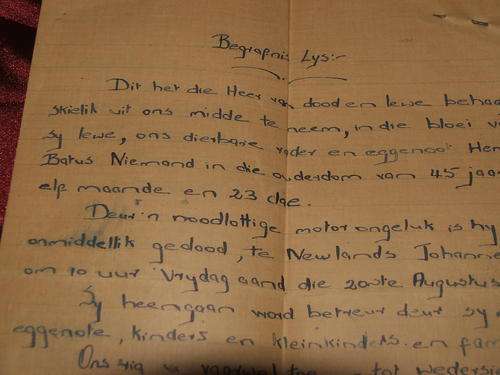 Begrafnis Lys:-
Dit het die Heer van dood en lewe behaa
skielik uit ons midde te neem, in die bloei v
sy lewe, ons dierbare vader en eggenoot Hen
Batus Niemand in die ouderdom van 45 jaar
elf maande en 23 dae.
Deur 'n noodlottige motor ongeluk is hy
onmiddellik gedood, te Newlands Johanne
om 10 uur Vrydag aand die 20ste Augustus
Sy heengaan word betreur deur sy
eggenote, kinders en kleinkinders en fam
Ons sig tot wedersie